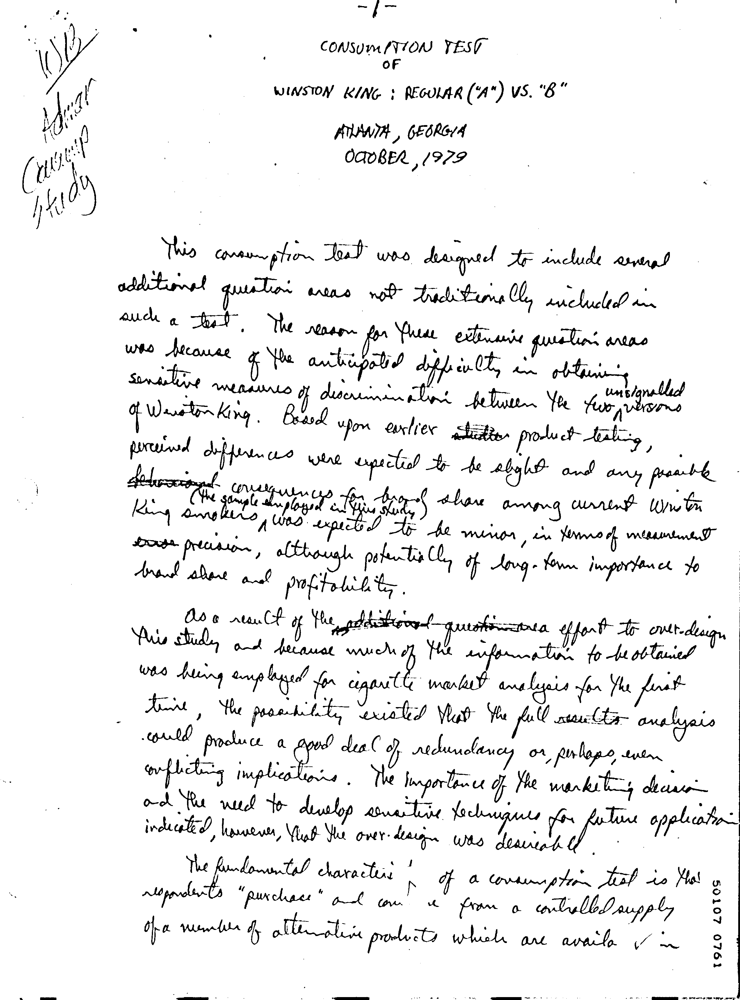 -1-
CONSUMPTION TEST
OF
WINSTON KING : REGULAR ("A") VS. "B"
ATLANTA, GEORGIA
OCTOBER, 1979
Consump
Study
This consumption test was designed to include several
additional question areas not traditionally included in
such a test. The reason for these extensive question areas
was because of the anticipated difficulty in obtaining
sensitive measures of discrimination between the two unsignalled versions
of Winston King. Based upon earlier studies product testing,
perceived differences were expected to be slight and any possible
behavioral consequences for brand share among current Winston
King smokers (the sample employed in this study) was expected to be minor, in terms of measurement
error precision, although potentially of long-term importance to
brand share and profitability.
As a result of the additional question area effort to over-design
this study and because much of the information to be obtained
was being employed for cigarette market analysis for the first
time, the possibility existed that the full results analysis
could produce a good deal of redundancy or, perhaps, even
conflicting implications. The importance of the marketing decision
and the need to develop sensitive techniques for future application
indicated, however, that the over-design was desireable.
The fundamental characteri of a consumption test is that
respondents "purchase" and con e from a controlled supply
of a number of alternative products which are availa in
50107 0761